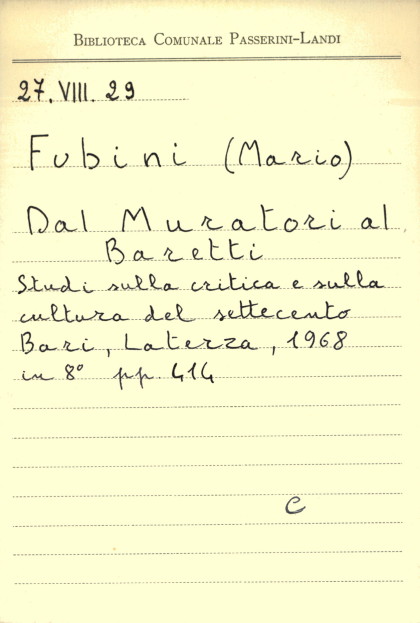 BIBLIOTECA COMUNALE PASSERINI-LANDI
27. VIII. 29
Fubini (Mario)
Dal Muratori al
Baretti
Studi sulla critica e sulla
cultura del settecento
Bari, Laterza, 1968
in 8° pp. 414
C